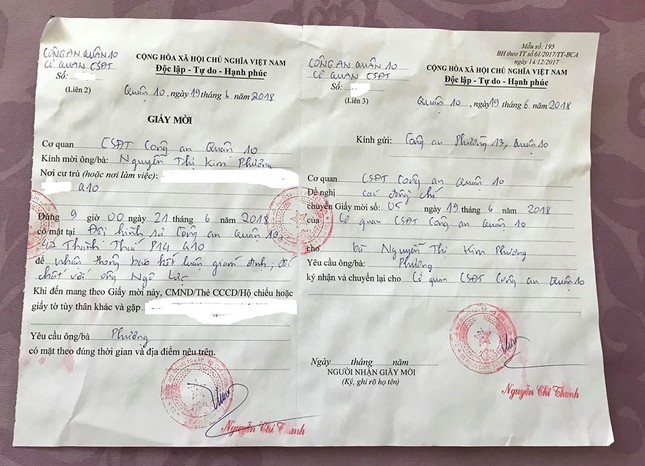 CÔNG AN QUẬN 10
CƠ QUAN CSĐT
Số:
(Liên 2)
CỘNG HÒA XÃ HỘI CHỦ NGHĨA VIỆT NAM
Độc lập - Tự do - Hạnh phúc
Quận 10, ngày 19 tháng 6 năm 2018
GIẤY MỜI
Cơ quan CSĐT Công an Quận 10
Kính mời ông/bà: Nguyễn Thị Kim Phượng
Nơi cư trú (hoặc nơi làm việc):
Q10
Đúng 9 giờ 00 ngày 21 tháng 6 năm 2018
có mặt tại Đội hình sự Công an Quận 10,
47 Thành Thái P14 Q10
để nhận thông báo kết luận giám định; đối
chất với ông Ngô Lực
Khi đến mang theo Giấy mời này, CMND/Thẻ CCCD/Hộ chiếu hoặc
giấy tờ tùy thân khác và gặp
Yêu cầu ông/bà Phượng
có mặt theo đúng thời gian và địa điểm nêu trên.
Nguyễn Chí Thanh
Mẫu số: 195
BH theo TT số 61/2017/TT-BCA
ngày 14/12/2017
CÔNG AN QUẬN 10
CƠ QUAN CSĐT
Số:
(Liên 3)
CỘNG HÒA XÃ HỘI CHỦ NGHĨA VIỆT NAM
Độc lập - Tự do - Hạnh phúc
Quận 10, ngày 19 tháng 6 năm 2018
Kính gửi: Công an Phường 13, Quận 10
Cơ quan CSĐT Công an Quận 10
Đề nghị các đồng chí
chuyển Giấy mời số: 05 ngày 19 tháng 6 năm 2018
của Cơ quan CSĐT Công an Quận 10
cho bà Nguyễn Thị Kim Phượng
Yêu cầu ông/bà Phượng
ký nhận và chuyển lại cho Cơ quan CSĐT Công an Quận 10
Ngày tháng năm
NGƯỜI NHẬN GIẤY MỜI
(Ký, ghi rõ họ tên)
Nguyễn Chí Thanh